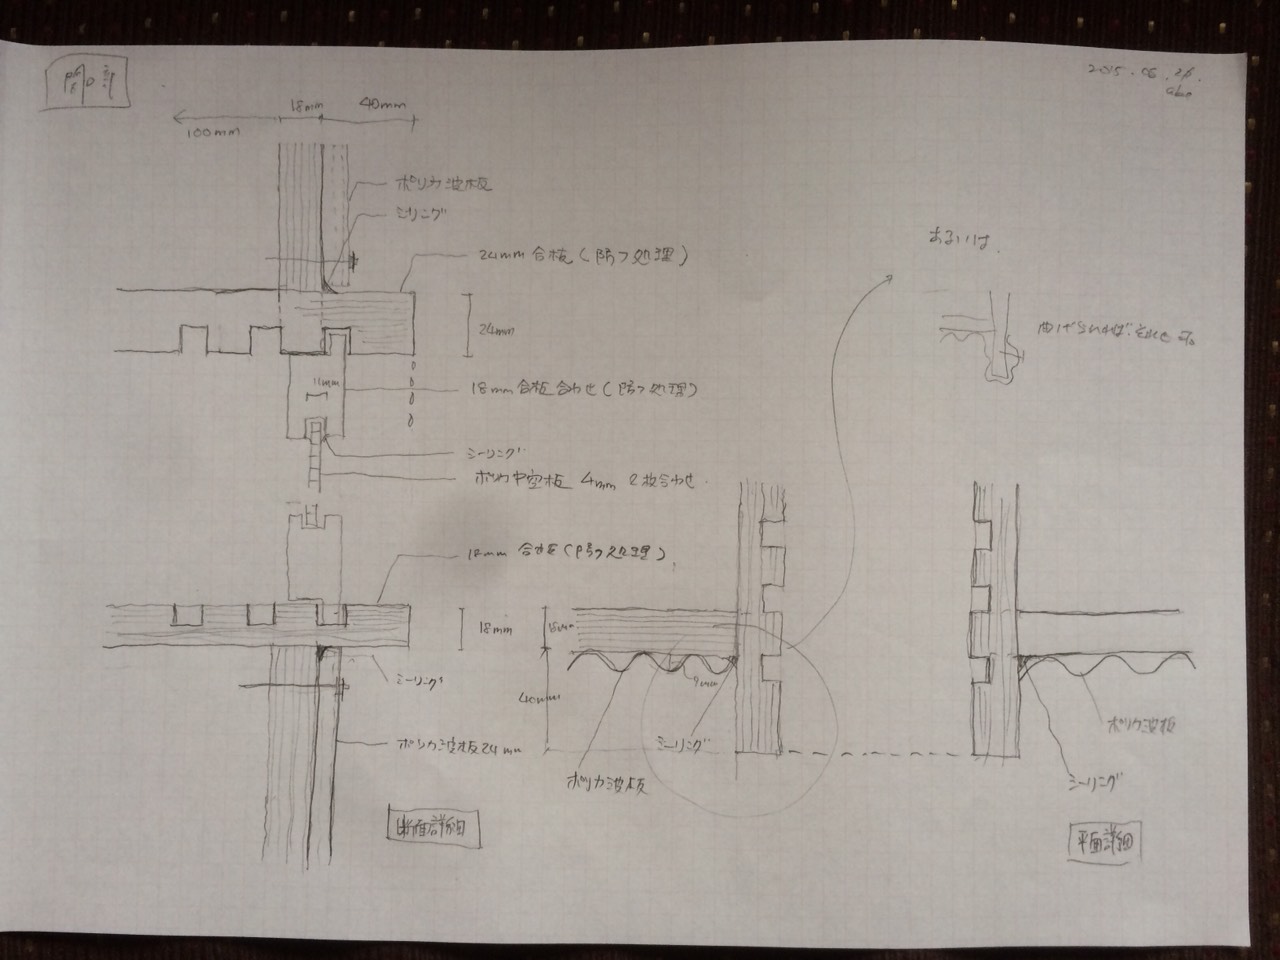 開口部
2015.06.26.
abe
18mm
40mm
100mm
ポリカ波板
シーリング
24mm 合板(防フ処理)
24mm
11mm
18mm 合板合わせ(防フ処理)
シーリング
ポリカ中空板 4mm 2枚合わせ
18mm 合板(防フ処理)
18mm
シーリング
ポリカ波板 24mm
断面詳細
あるいは.
曲げられれば、それも可。
18mm
9mm
40mm
シーリング
ポリカ波板
ポリカ波板
シーリング
平面詳細